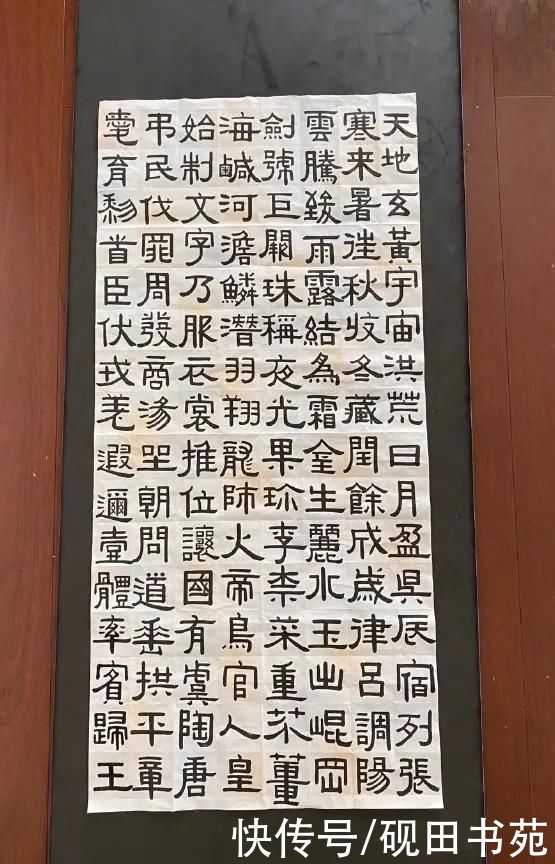 天地玄黃宇宙洪荒日月盈昃辰宿列張
寒来暑往秋收冬藏閏餘成歲律呂調陽
雲騰致雨露結為霜金生麗水玉出崐岡
劍號巨闕珠稱夜光果珎李柰菜重芥薑
海鹹河澹鱗潛羽翔龍師火帝鳥官人皇
始制文字乃服衣裳推位讓國有虞陶唐
弔民伐罪周發商湯坐朝問道垂拱平章
愛育黎首臣伏戎羌遐邇壹體率賓歸王
快传号/砚田书苑